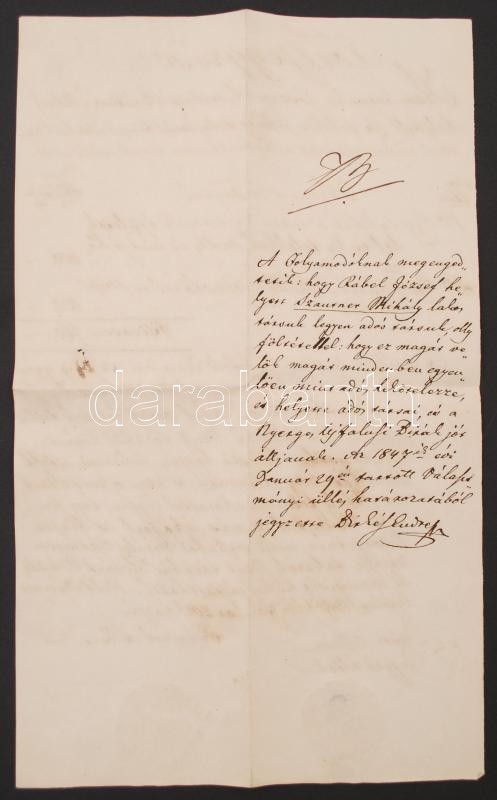 A Folyamodóknak megenged
tetik: hogy Rábel József he
lyett Szautner Mihály lakos
társuk legyen adós társuk, olly
föltétellel: hogy ez magát ve
lök magát mindenben egyen
lően mint adós kötelezze,
és helyette adós társai, és a
Nyerges Ujfalusi Birák jót
álljanak. Az 1847ik évi
Januar 29én tartott Választ
mányi ülés határozatából
jegyzette
darabanth